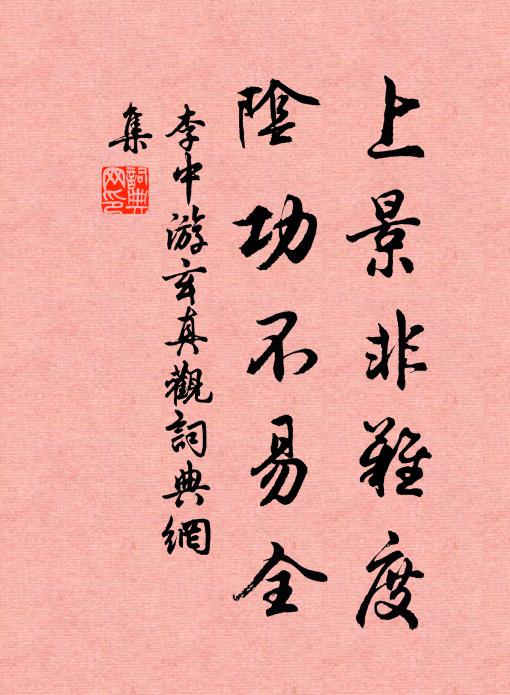 上景非難度
陰功不易全
李中游玄真觀詞典網
集
詞典網印